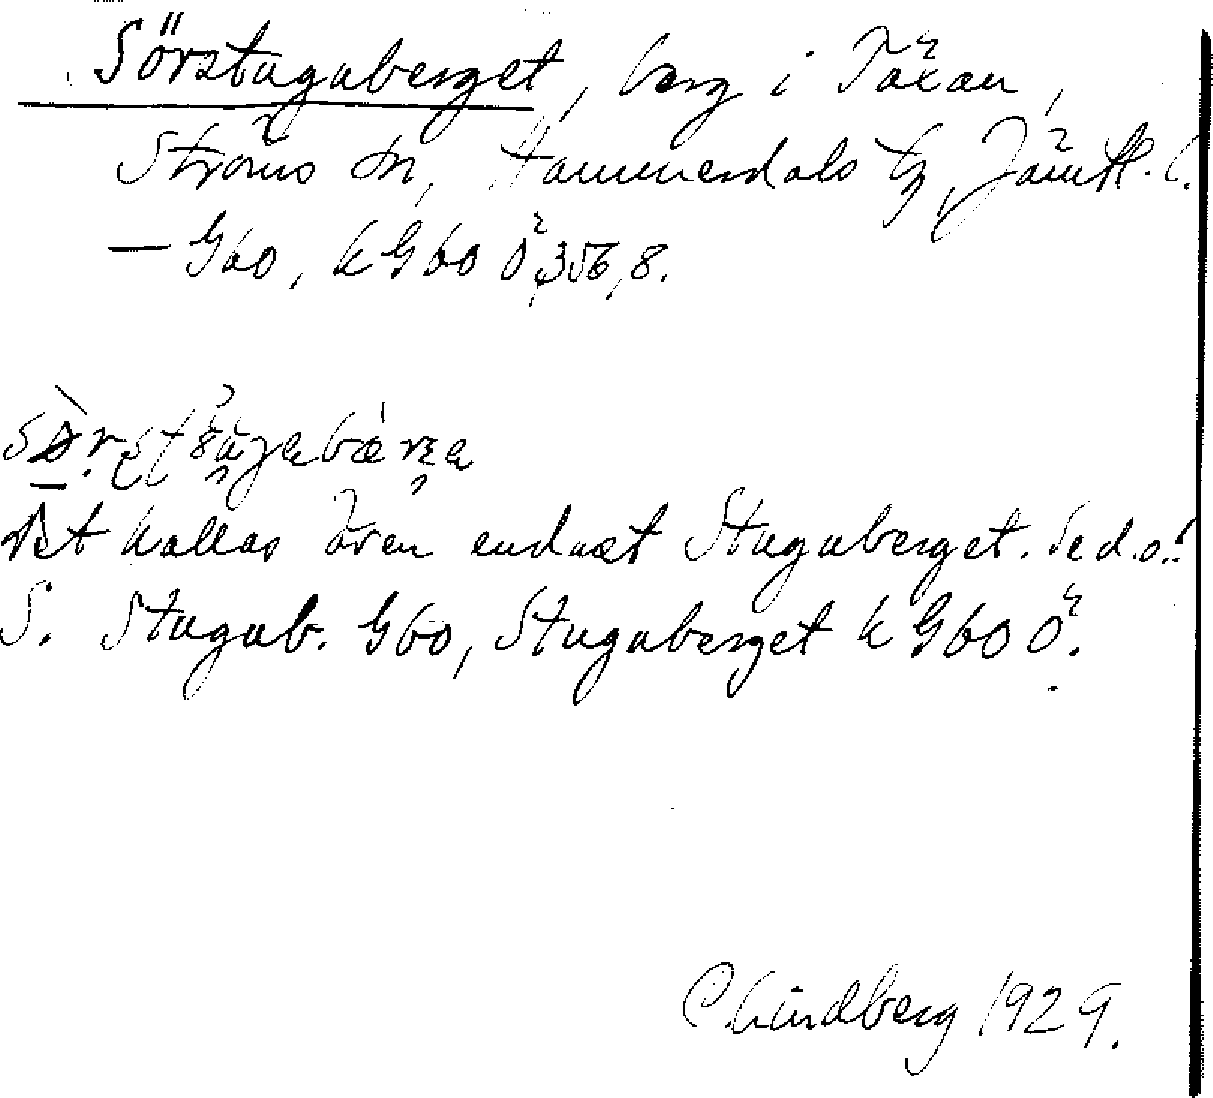 Sörstuguberget, berg i Täxan,
Ströms sn, Hammerdals tg, Jämtl. l.
— G60, k G60 Ö, 356, 8.
Det kallas även endast Stuguberget. Se d.o.!
S. Stugub. G60, Stuguberget k G60 Ö.
C Lindberg 1929.